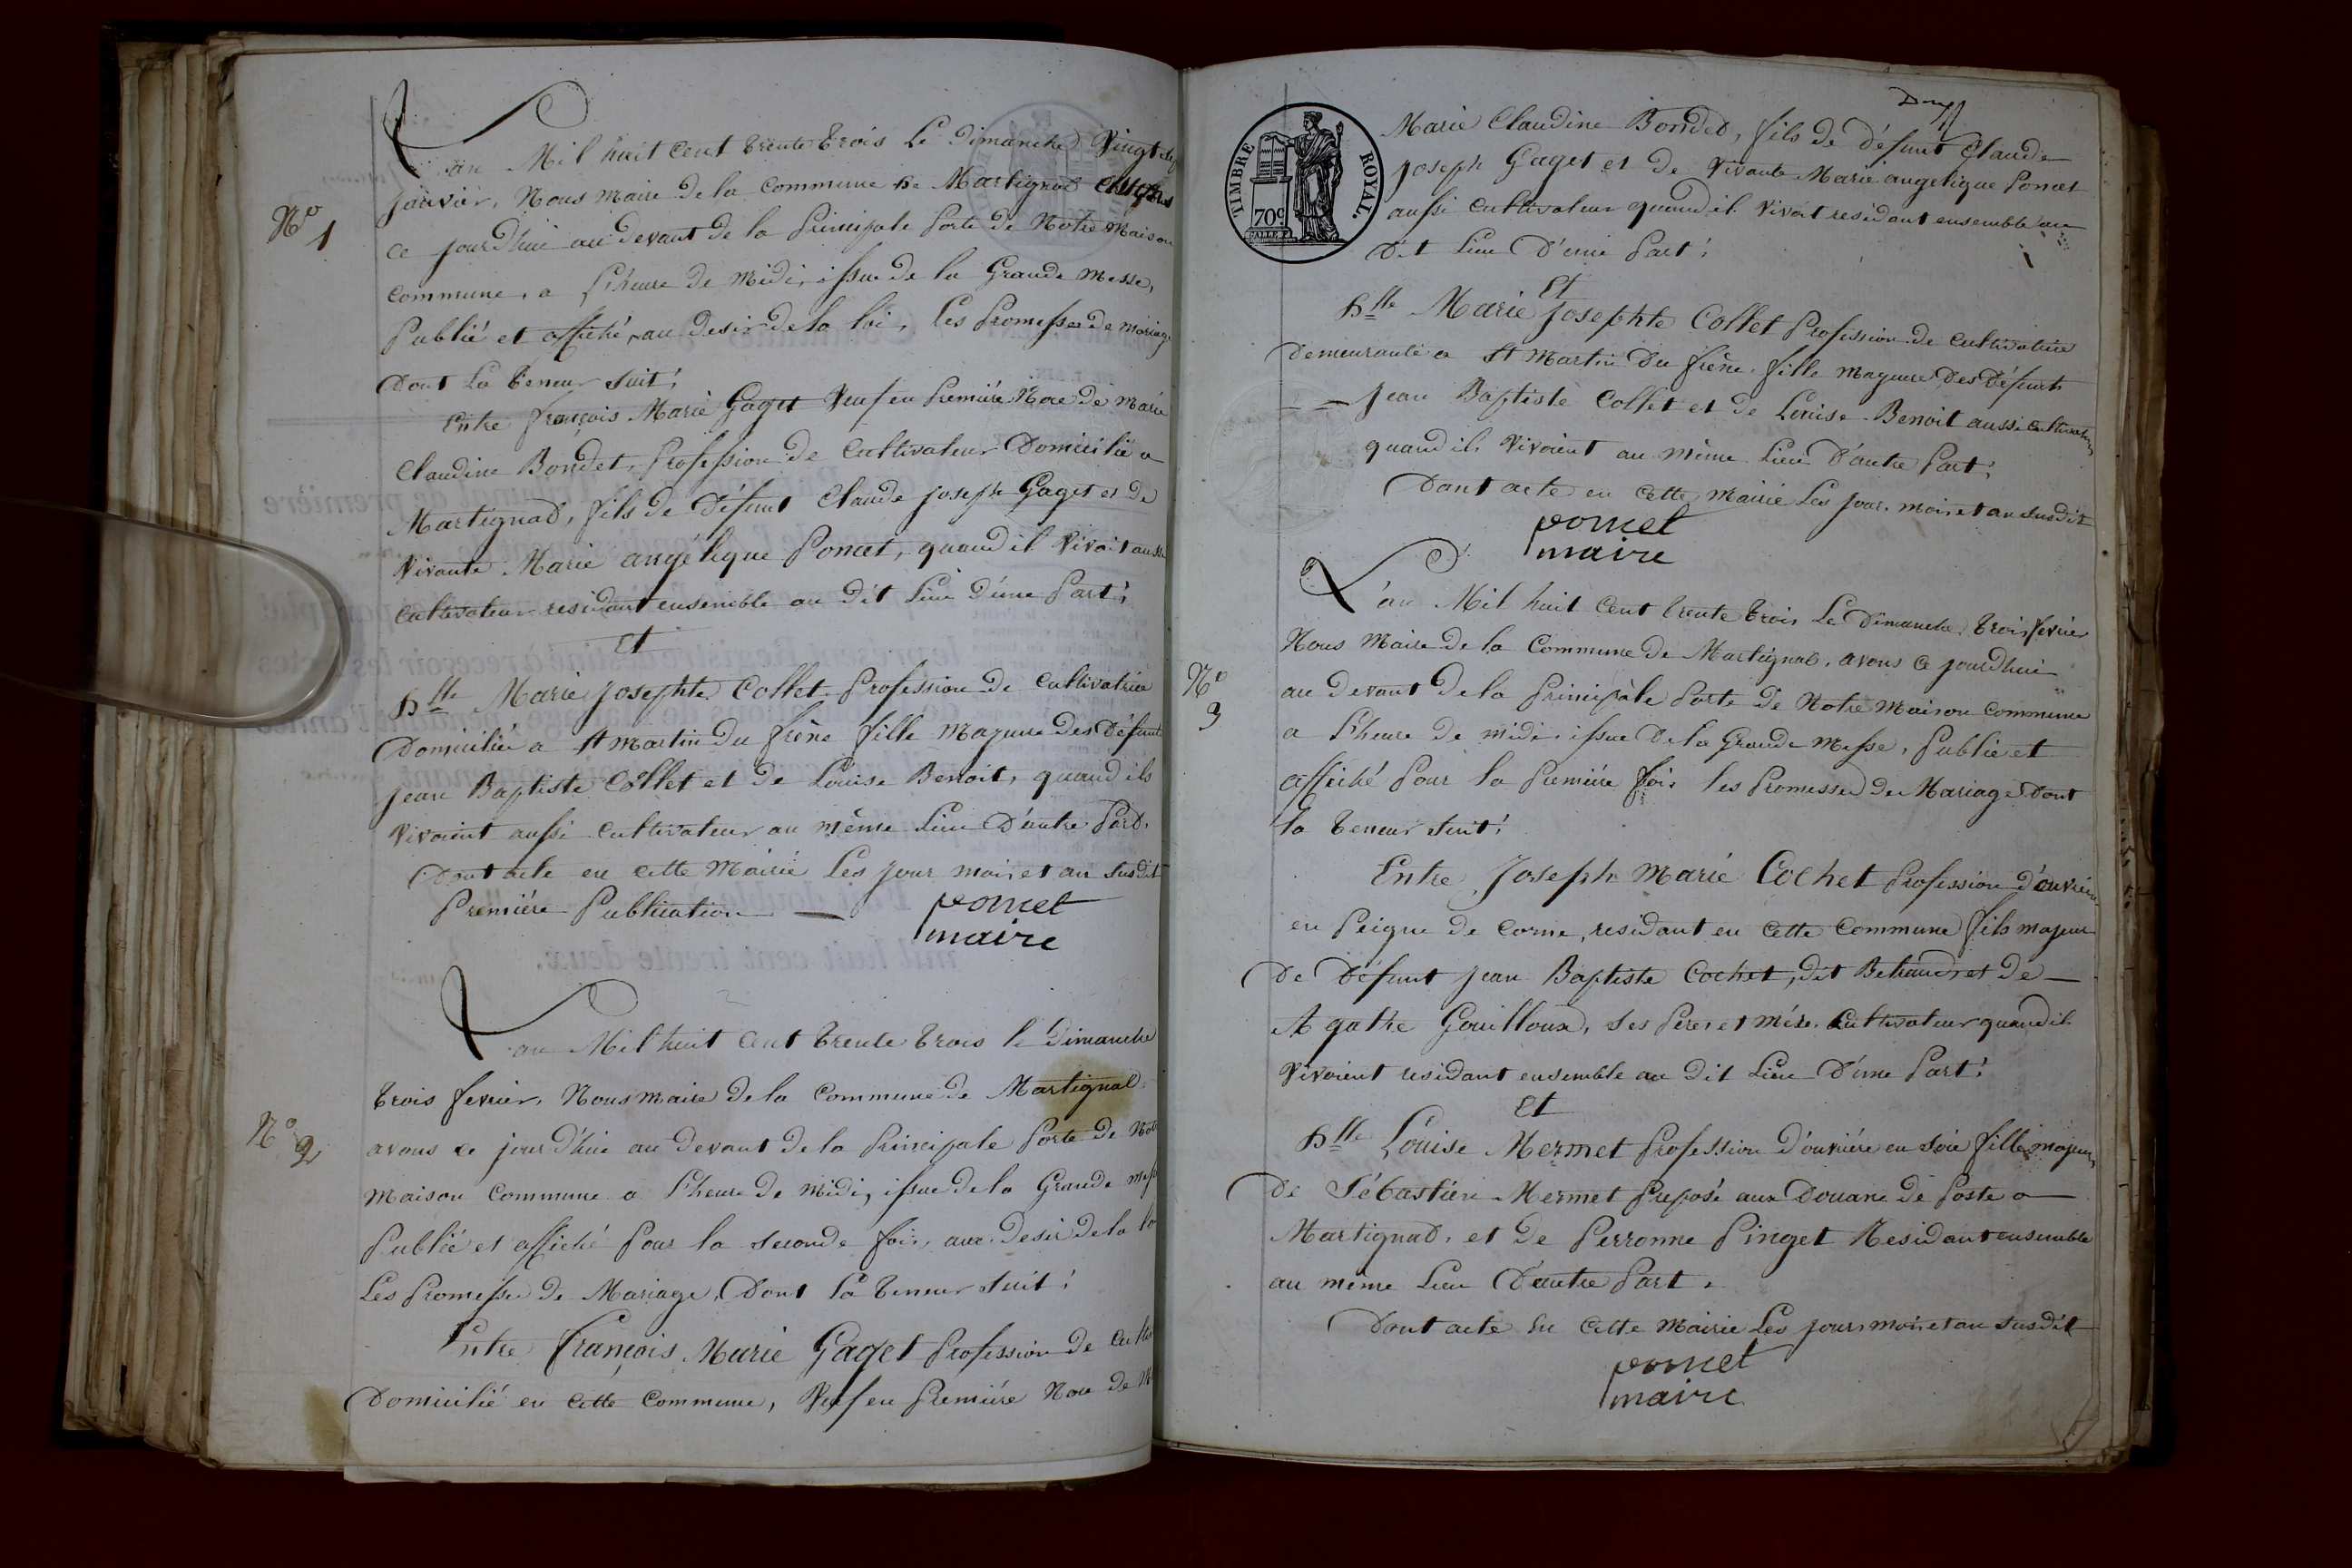 L'an Mil huit Cent trente trois Le Dimanche Vingt sept
janvier, Nous Maire de la Commune de Martignat
N° 1
ce jourd'hui au devant de la Principale Porte de Notre Maison
Commune, a l'heure de Midi, issue de la Grande Messe,
Publié et affiché, au desir de la loi, les Promesses de Mariage
Dont La teneur suit;
Entre françois Marie Gaget Veuf en Premiére Noce de Marie
Claudine Bondet, Profession de Cultivateur Domicilié a
Martignat, fils de Défunt Claude joseph Gaget et de
Vivante Marie angélique Poncet, quand il Vivoit aussi
Cultivateur residant ensemble au dit Lieu d'une Part;
Et
Dlle Marie josephte Collet Profession de Cultivatrice
Domiciliée a St Martin du frêne fille Majeure Des Défunts
jean Baptiste Collet et de Louise Benoit, quand ils
Vivoient aussi Cultivateur au même Lieu D'autre Part.
Dont acte en Cette Mairie Les jour mois et an susdit
Premiére Publication
poncet
maire
L'an Mil huit Cent trente trois le Dimanche
trois fevrier, Nous Maire de la Commune de Martignat
N° 2
avons ce jourd'hui au devant de la Principale Porte de Notre
Maison Commune a l'heure de Midi, issue de la Grande Messe
Publié et affiché Pour la seconde fois, au Desir de la loi
Les Promesse de Mariage, Dont La teneur suit;
Entre François Marie Gaget Profession de
Domicilié en Cette Commune, Veuf en Premiére Noce de
Marie Claudine Bondet, fils de Défunt Claude
joseph Gaget et de Vivante Marie angelique Poncet
aussi Cultivateur quand il Vivoit residant ensemble au
Dit Lieu D'une Part;
TIMBRE ROYAL.
70c
Et
Dlle Marie Josephte Collet Profession de Cultivatrice
Demeurante a St Martin Du frêne fille Majeure Des Défunts
jean Baptiste Collet et de Louise Benoit aussi Cultivateurs
quand ils Vivoient au même Lieu D'autre Part;
Dont acte en Cette Mairie Les jour, mois et an susdit
poncet
maire
L'an Mil huit Cent trente trois Le Dimanche trois fevrier
Nous Maire de la Commune de Martignat, avons ce jourd'hui
N° 3
au devant De la Principale Porte De Notre Maison Commune
a l'heure de midi, issue De la Grande Messe, Publié et
affiché Pour la Premiére fois les Promesses de Mariage Dont
la teneur suit;
Entre Joseph Marie Cochet Profession d'ouvrier
en Peigne de Corne, residant en Cette Commune fils majeur
De Défunt jean Baptiste Cochet, dit et De
Agathe Gouilloux, ses Peres et Mére. Cultivateur quand ils
Vivoient residant ensemble au Dit Lieu D'une Part;
Et
Dlle Louise Mermet Profession D'ouvriére en Soie fille majeure
De Sébastien Mermet Preposé aux Douane de Poste a
Martignat, et De Perronne Pinget Residant ensemble
au même Lieu D'autre Part.
Dont acte En Cette Mairie Les jour, mois et an susdit
poncet
maire